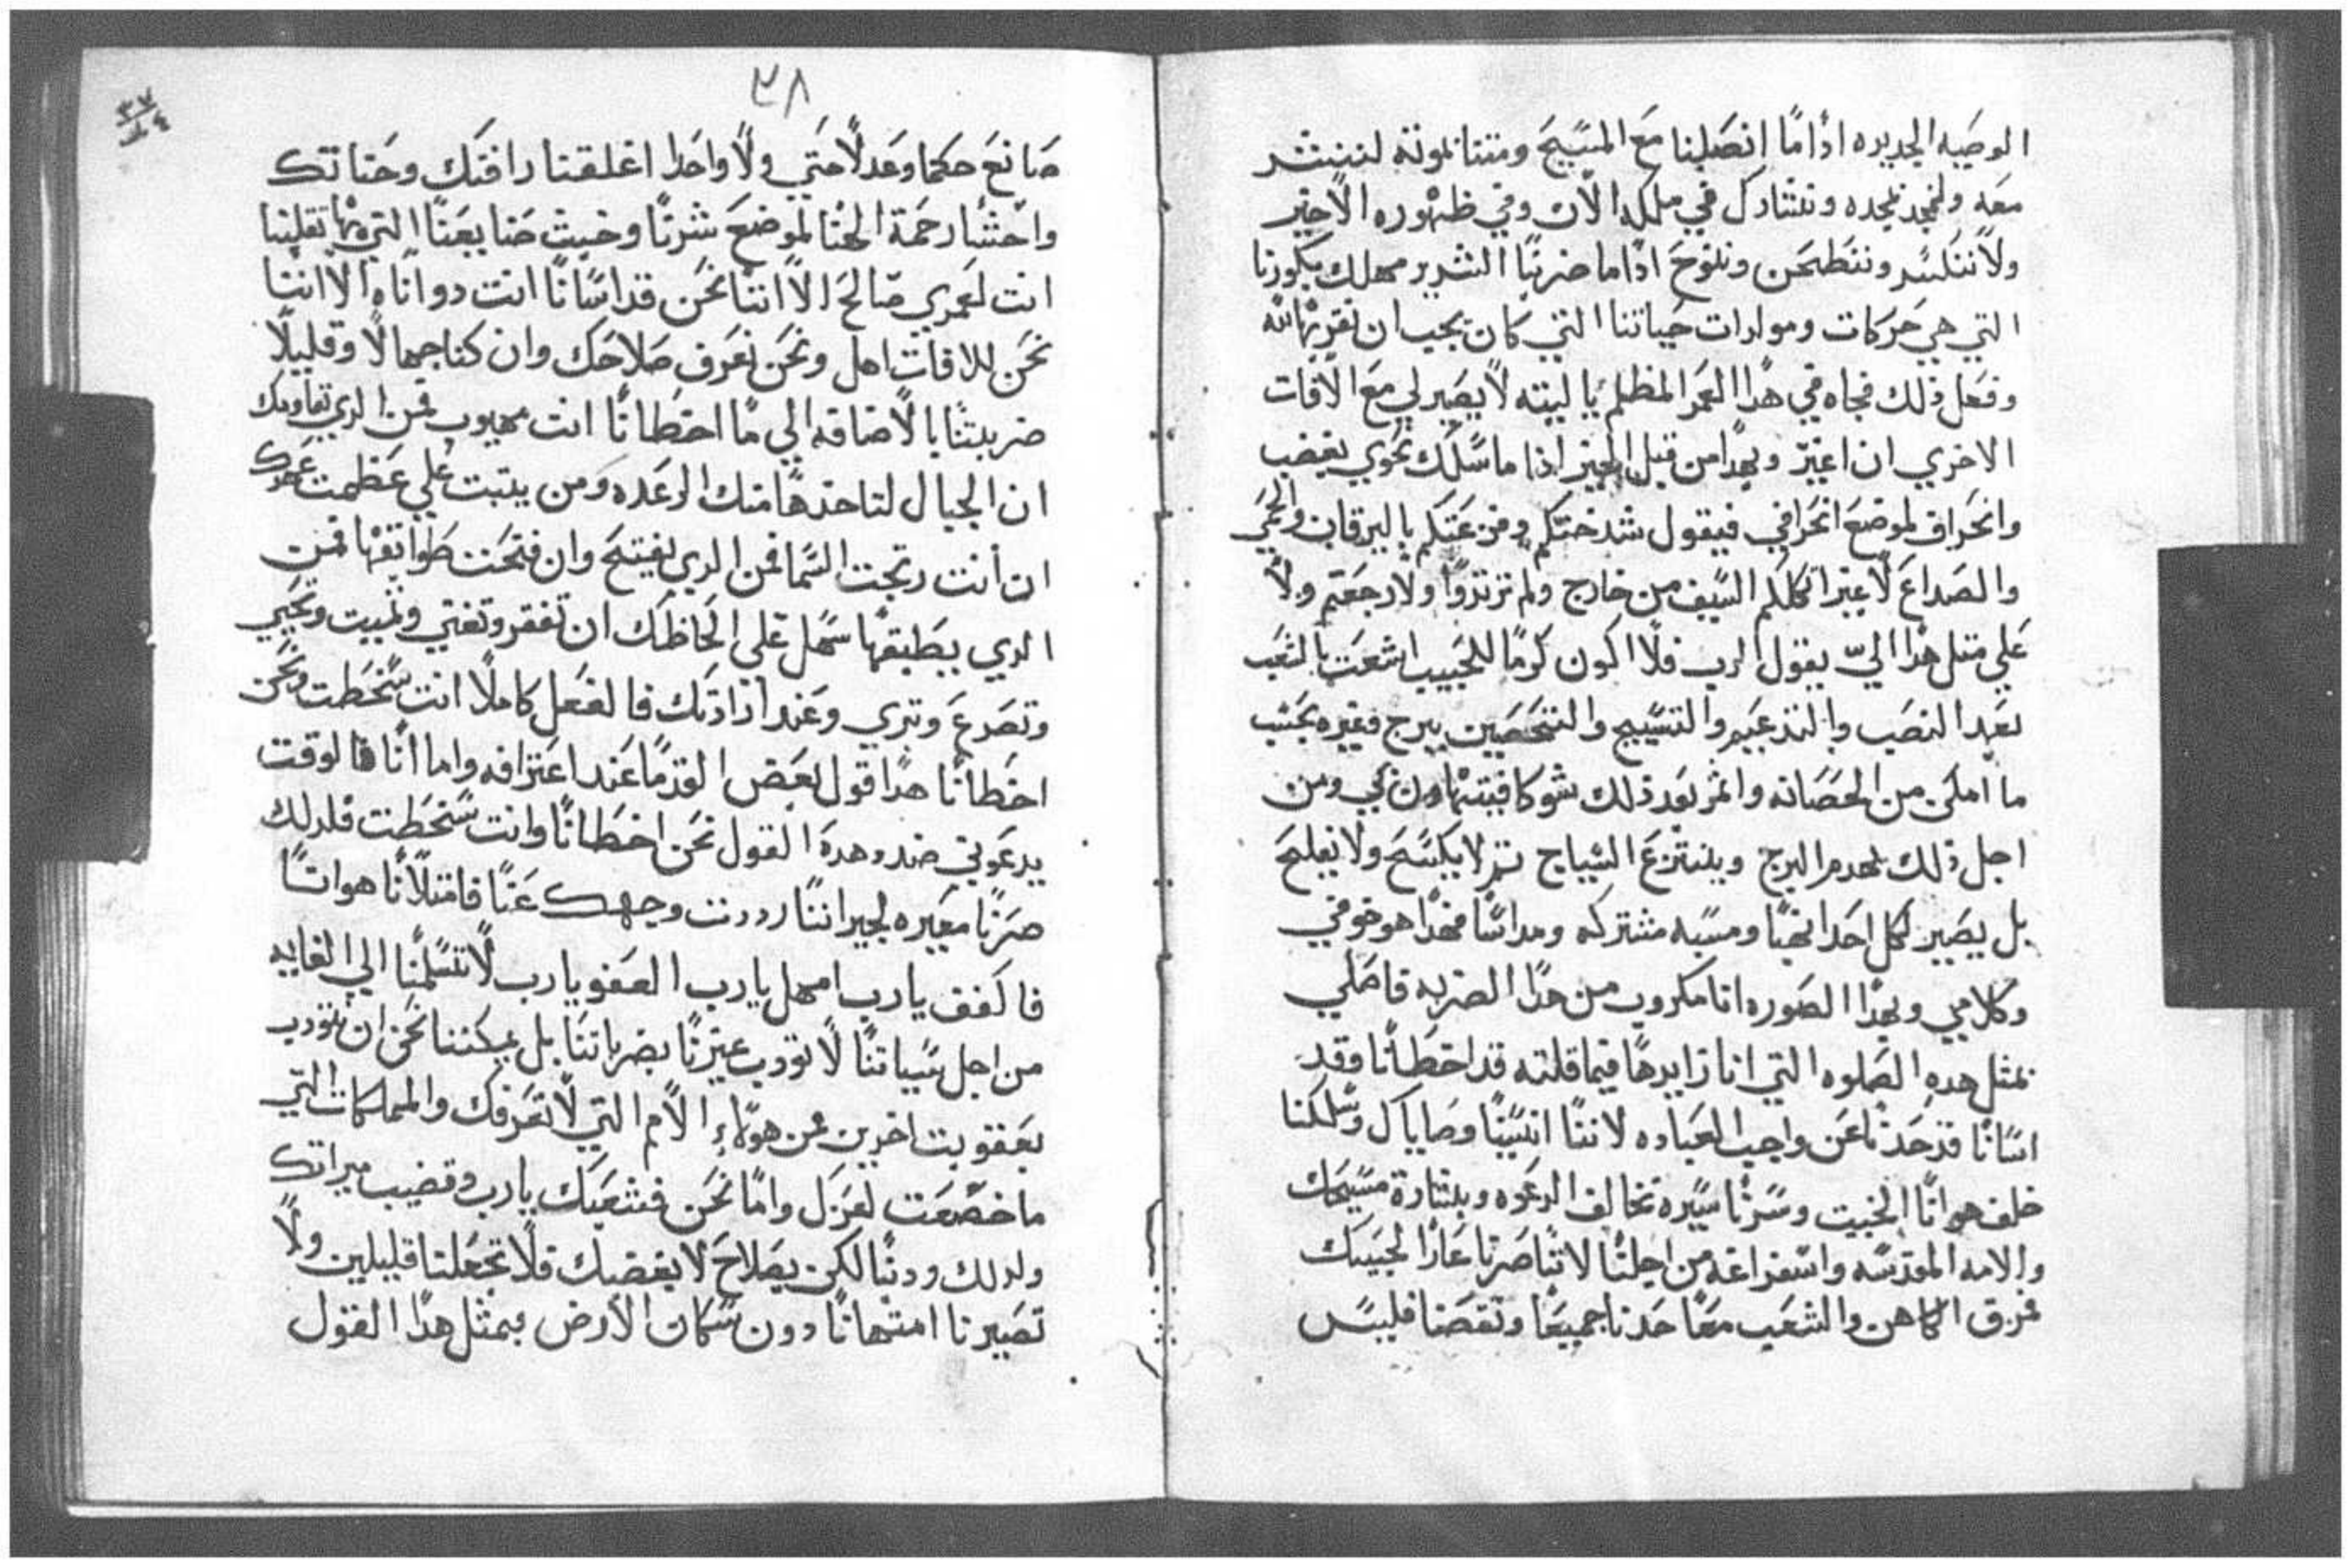 الوصيه الجديده اذاما اتصلنا مع المسيح ومتنا بموته لننتشر
معه ولنمجد بمجده ونتشارك في ملكه الان وفي ظهوره الاخير
ولا ننكسر وننطحن وننوح اذاما ضربنا الشديد مهلك بكورنا
التي هي حركات ومولدات حياتنا التي كان يجب ان نقربها لله
وفعل ذلك فجاه في هذا العمر المظلم يا ليته لا يصير لي مع الافات
الاخري ان اعير وبهذا من قبل الخير اذا ما سلك نحوي بغضب
وانحراف لموضع انحرافي فيقول شدختكم وفزعتكم باليرقان والحمي
والصداع لاعيرا ثكلكم السيف من خارج ولم ترتدوا ولا رجعتم ولا
علي مثل هذا الي يقول الرب فلا اكون كرما للحبيب اشعت بالشعب
بعد النصب والتدعيم والتسييج والتحصين ببرج وغيره بحسب
ما امكن من الحصانه واثمر بعد ذلك شوكا فيتهاون بي ومن
اجل ذلك يهدم البرج وينتزع السياج ثم لا يكسح ولا يفلح
بل يصير لكل احدا نهبا ومسبه مشتركه ومداسا فهذا هو خوفي
وكلامي وبهذا الصوره انا مكروب من هذا الضربه فاصلي
بمثل هده الصلوه التي انا زايدها فيما قلته قد اخطانا وقد
اسانا قد حدنا عن واجب العباده لاننا انسينا وصاياك وسلكنا
خلف هوانا الخبيث وسرنا سيره تخالف الدعوه وبشارة مسيحك
والامه المقدسه واستفراغه من اجلنا لاننا صرنا عارا لحبيبك
فرق الكاهن والشعب معا حدنا جميعا ونقصنا فليس
٣٨
٣٧
صانع حكما وعدلا حتي ولا واحدا اغلقنا رافتك وحنانتك
واحشا رحمة الهنا لموضع شرنا وخبث صنايعنا التي بها تقلبنا
انت لعمري صالح الا اننا نحن قد اسانا انت دو اناه الا اننا
نحن للافات اهل ونحن نعرف صلاحك وان كنا جهالا وقليلا
ضربتنا بالاضافه الي ما اخطانا انت مهيوب فمن الدي يقاومك
ان الجبال لتاخدها منك الرعده ومن يتبت علي عظمت عزك
ان انت رتجت السما فمن الدي يفتح وان فتحت طواقها فمن
الدي يطبقها سهل علي الحاظك ان تفقر وتغني وتميت وتحيي
وتصرع وتبري وعند ارادتك فالفعل كاملا انت سخطت ونحن
اخطانا هدا قول بعض القدما عند اعترافه واما انا فالوقت
يدعوني ضد وهدة القول نحن اخطانا وانت سخطت فلدلك
صرنا معيره لجيراننا رددت وجهك عنا فامتلانا هوانا
فاكفف يارب امهل يارب العفو يارب لا تسلمنا الي الغايه
من اجل سياتنا لا تودب غيرنا بضرباتنا بل يمكننا نحن ان نتودب
بعقوبت اخرين من هولاء الامم التي لا تعرفك والمملكات التي
ما خضعت لعزك واما نحن فشعبك يارب وقضيب ميراتك
ولدلك ودبنا لكن بصلاح لا بغضبك فلا تجعلنا قليلين ولا
تصيرنا امتهانا دون سكان الارض بمثل هدا القول